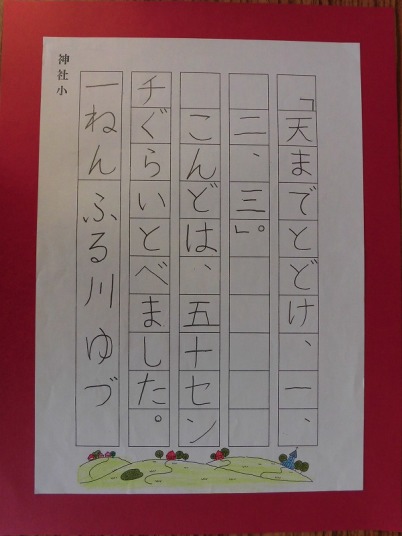 「天までとどけ、一、
二、三」。
こんどは、五十セン
チぐらいとべました。
一ねんふる川ゆづ
神社小